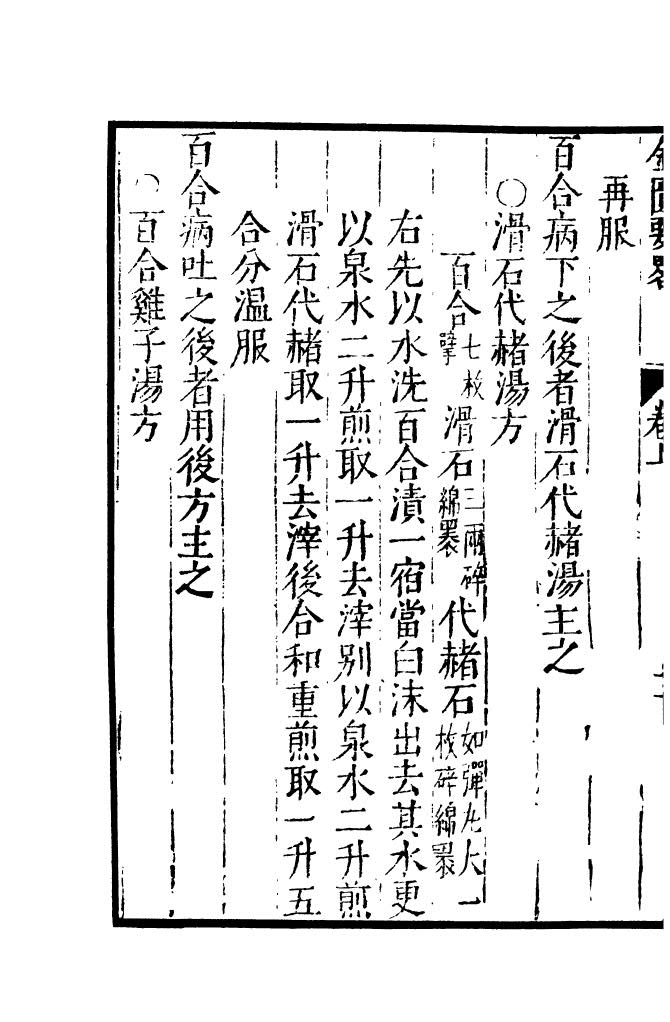 金匱要畧　卷上
再服
百合病下之後者滑石代赭湯主之
○滑石代赭湯方
百合七枚擘滑石三兩碎綿裹代赭石如彈丸大一枚碎綿裹
右先以水洗百合漬一宿當白沫出去其水更
以泉水二升煎取一升去滓别以泉水二升煎
滑石代赭取一升去滓後合和重煎取一升五
合分溫服
百合病吐之後者用後方主之
○百合雞子湯方